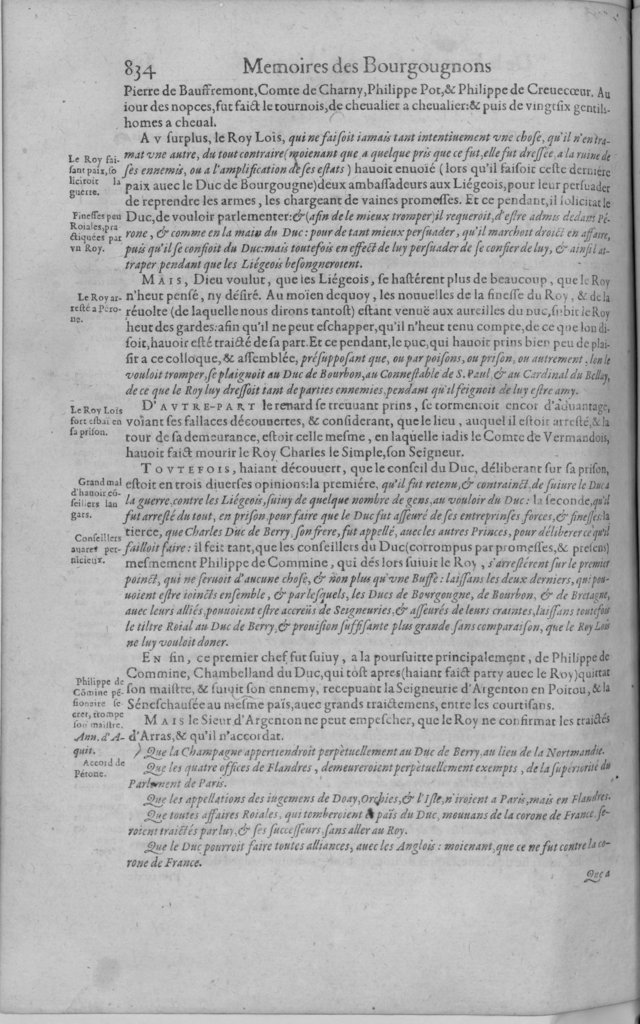 834 Memoires des Bourgougnons
Pierre de Bauffremont, Comte de Charny, Philippe Pot, & Philippe de Creuecœur. Au
iour des nopces, fut faict le tournois, de cheualier a cheualier: & puis de vingtsix gentils-
homes a cheual.
AV surplus, le Roy Loïs, qui ne faisoit iamais tant intentiuement vne chose, qu'il n'en tra-
mat vne autre, du tout contraire (moienant que a quelque pris que ce fut, elle fut dressée, a la ruine de
ses ennemis, ou a l'amplification de ses estats) hauoit enuoié (lors qu'il faisoit ceste derniére
paix auec le Duc de Bourgougne) deux ambassadeurs aux Liégeois, pour leur persuader
de reprendre les armes, les chargeant de vaines promesses. Et ce pendant, il solicitat le
Duc, de vouloir parlementer: & (afin de le mieux tromper) il requeroit, d'estre admis dedans Pé-
rone, & comme en la main du Duc: pour de tant mieux persuader, qu'il marchoit droict en affaire,
puis qu'il se confioit du Duc: mais toutefois en effect de luy persuader de se confier de luy, & ainsi l'at-
traper pendant que les Liégeois besongneroient.
Le Roy fai-
sant paix, so
liciroit la
guerre.
Finesses peu
Roiales, pra
ctiquées par
vn Roy.
MAIS, Dieu voulut, que les Liégeois, se hastérent plus de beaucoup, que le Roy
n'heut pensé, ny désiré. Au moïen dequoy, les nouuelles de la finesse du Roy, & de la
réuolte (de laquelle nous dirons tantost) estant venuë aux aureilles du DUC, subit le Roy
heut des gardes: afin qu'il ne peut eschapper, qu'il n'heut tenu compte, de ce que lon di-
soit, hauoir esté traicté de sa part. Et ce pendant, le DUC, qui hauoit prins bien peu de plai-
sir a ce colloque, & assemblée, présupposant que, ou par poisons, ou prison, ou autrement, lon le
vouloit tromper, se plaignoit au Duc de Bourbon, au Connestable de S. Paul, & au Cardinal du Bellay,
de ce que le Roy luy dressoit tant de parties ennemies, pendant qu'il feignoit de luy estre amy.
Le Roy ar-
resté a Pero-
ne.
D'AVTRE-PART le renard se treuuant prins, se tormentoit encor d'aduantage,
voïant ses fallaces découuertes, & considerant, que le lieu, auquel il estoit arresté, & la
tour de sa demeurance, estoit celle mesme, en laquelle iadis le Comte de Vermandois,
hauoit faict mourir le Roy Charles le Simple, son Seigneur.
Le Roy Loïs
fort esbai en
sa prison.
TOVTEFOIS, haiant découuert, que le conseil du Duc, déliberant sur sa prison,
estoit en trois diuerses opinions: la premiére, qu'il fut retenu, & contrainct, de suiure le Duc a
la guerre, contre les Liégeois, suiuy de quelque nombre de gens, au vouloir du Duc: la seconde, qu'il
fut arresté du tout, en prison, pour faire que le Duc fut asseuré de ses entreprinses forces, & finesses: la
tierce, que Charles Duc de Berry, son frére, fut appellé, auec les autres Princes, pour déliberer ce qu'il
failloit faire: il feit tant, que les conseillers du Duc (corrompus par promesses, & presens)
mesmement Philippe de Commine, qui dés lors suiuit le Roy, s'arrestérent sur le premier
poinct, qui ne seruoit d'aucune chose, & non plus qu'vne Buffe: laissans les deux derniers, qui pou-
uoient estre ioincts ensemble, & par lesquels, les Ducs de Bourgougne, de Bourbon, & de Bretagne,
auec leurs alliés, pouuoient estre accreüs de Seigneuries, & asseurés de leurs craintes, laissans toutefois
le tiltre Roial au Duc de Berry, & prouision suffisante plus grande, sans comparaison, que le Roy Loïs
ne luy vouloit doner.
Grand mal
d'hauoir cō-
seillers lan
gars.
Conseillers
auares per-
nicieux.
EN fin, ce premier chef fut suiuy, a la poursuitte principalement, de Philippe de
Commine, Chambelland du Duc, qui tôst apres (haiant faict party auec le Roy) quittat
son maistre, & suiuit son ennemy, recepuant la Seigneurie d'Argenton en Poitou, & la
Séneschausée au mesme païs, auec grands traictemens, entre les courtisans.
Philippe de
Cōmine pé-
sionaire se-
cret, trompe
son maistre.
MAIS le Sieur d'Argenton ne peut empescher, que le Roy ne confirmat les traictés
d'Arras, & qu'il n'accordat.
Ann. d'A-
quit.
Accord de
Pérone.
Que la Champagne appertiendroit perpétuellement au Duc de Berry, au lieu de la Nortmandie.
Que les quatre offices de Flandres, demeureroient perpétuellement exempts, de la supériorité du
Parlement de Paris.
Que les appellations des iugemens de Doay, Orchies, & l'Isle, n'iroient a Paris, mais en Flandres.
Que toutes affaires Roiales, qui tomberoient païs du Duc, mouuans de la corone de France, se-
roient traictés par luy, & ses successeurs, sans aller au Roy.
Que le Duc pourroit faire toutes alliances, auec les Anglois: moienant, que ce ne fut contre la co-
rone de France.
Que a